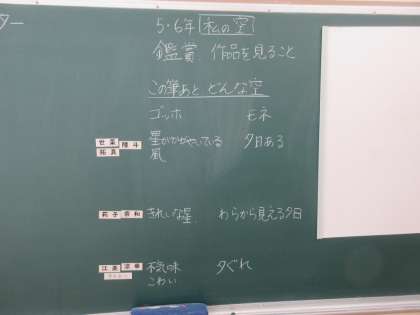 ター
5・6年 私の空
鑑賞 作品を見ること
この筆あと どんな空
ゴッホ モネ
星がかがやいている 夕日ある
風
きれいな星 わらから見える夕日
不気味 夕ぐれ
こわい